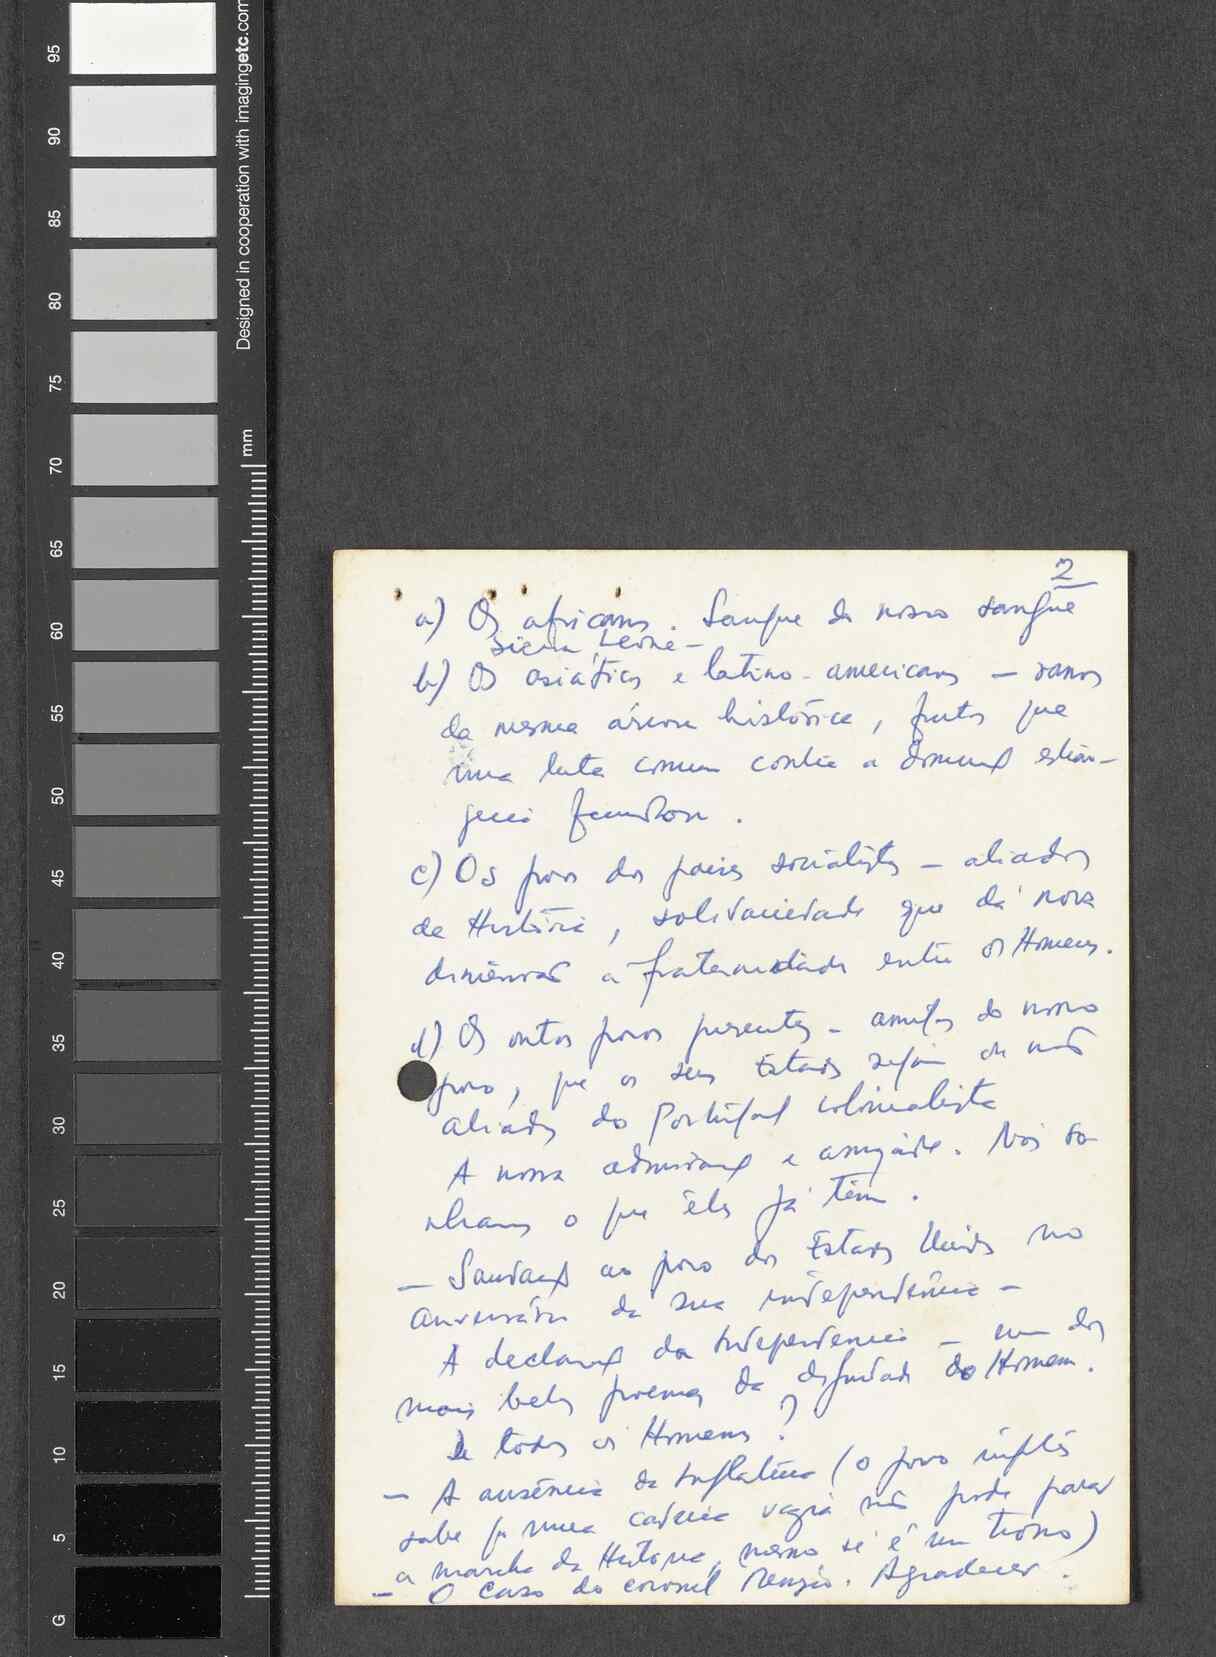 95
90
85
80
75
70
65
60
55
50
45
40
35
30
25
20
15
10
5
G
Designed in cooperation with imagingetc.com
mm
2
a) Os africanos. Sangue do nosso sangue
Sierra Leone –
b) Os asiáticos e latino-americanos – ramos
da mesma árvore histórica, frutos que
uma luta comum contra a dominação estran-
geira
c) Os povos dos países socialistas – aliados
da História, solidariedade que dá nova
dimensão à fraternidade entre os Homens.
d) Os outros povos presentes – amigos do nosso
povo, que os seus Estados sejam ou não
aliados do Portugal colonialista
A nossa admiração e amizade. Nós so-
nhamos o que êles já têm.
– Saudação ao povo dos Estados Unidos no
aniversário da sua independência –
A declaração da Independencia – um dos
mais belos poemas da dignidade do Homem.
De todos os Homens?
– A ausência da Inglaterra (o povo inglês
sabe q uma cadeira vazia não pode parar
a marcha da História, mesmo se é um trono)
– O caso do coronel. Agradecer.